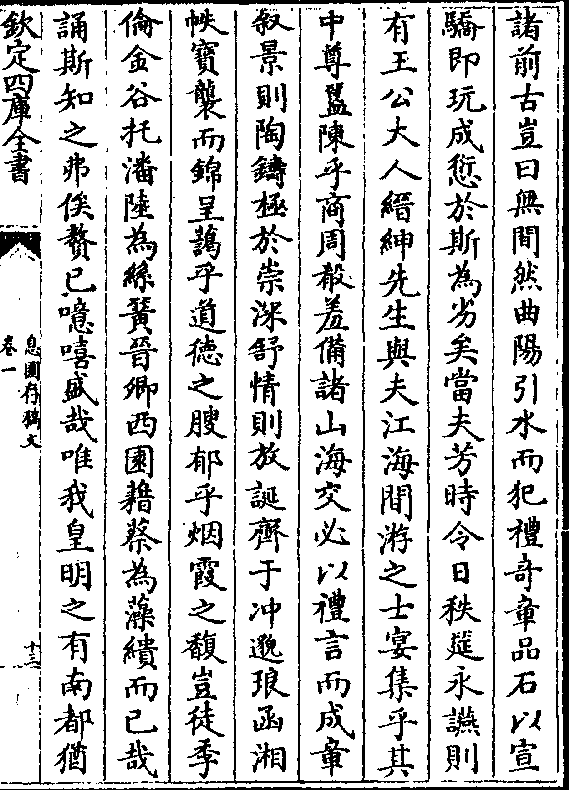 諸前古豈曰無間然曲陽引水而犯禮奇章品石以宣
驕即玩成愆於斯為劣矣當夫芳時令日秩筵永讌則
有王公大人縉紳先生與夫江海間游之士宴集乎其
中尊罍陳乎商周殽羞備諸山海交必以禮言而成章
叙景則陶鑄極於崇深舒情則放誕齊于冲邈琅函湘
帙寶襲而錦呈藹乎道德之腴郁乎烟霞之馥豈徒季
倫金谷托潘陸為絲簧晉卿西園藉蔡為藻繢而已哉
誦斯知之弗俟贅已噫嘻盛哉唯我皇明之有南都猶
欽定四庫全書
息園存稿文
卷一
十三